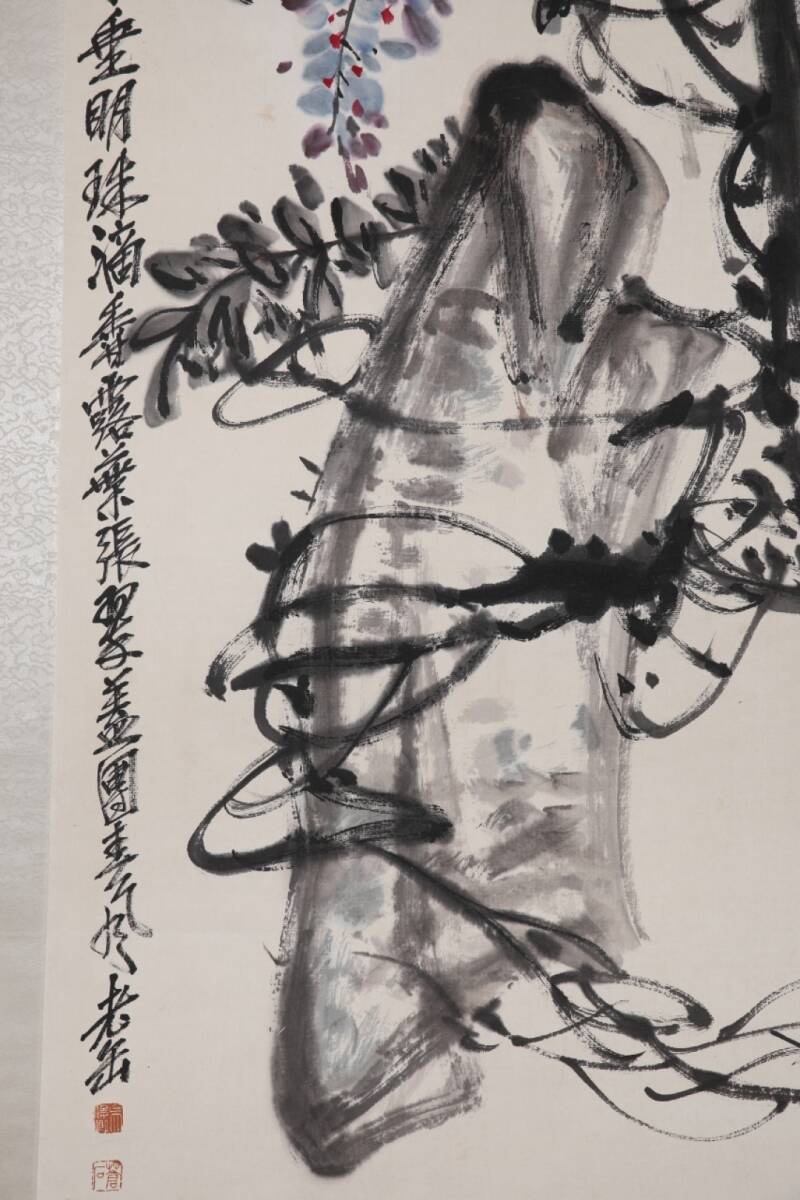 垂明珠滴香露葉張翠蓋團春風老缶